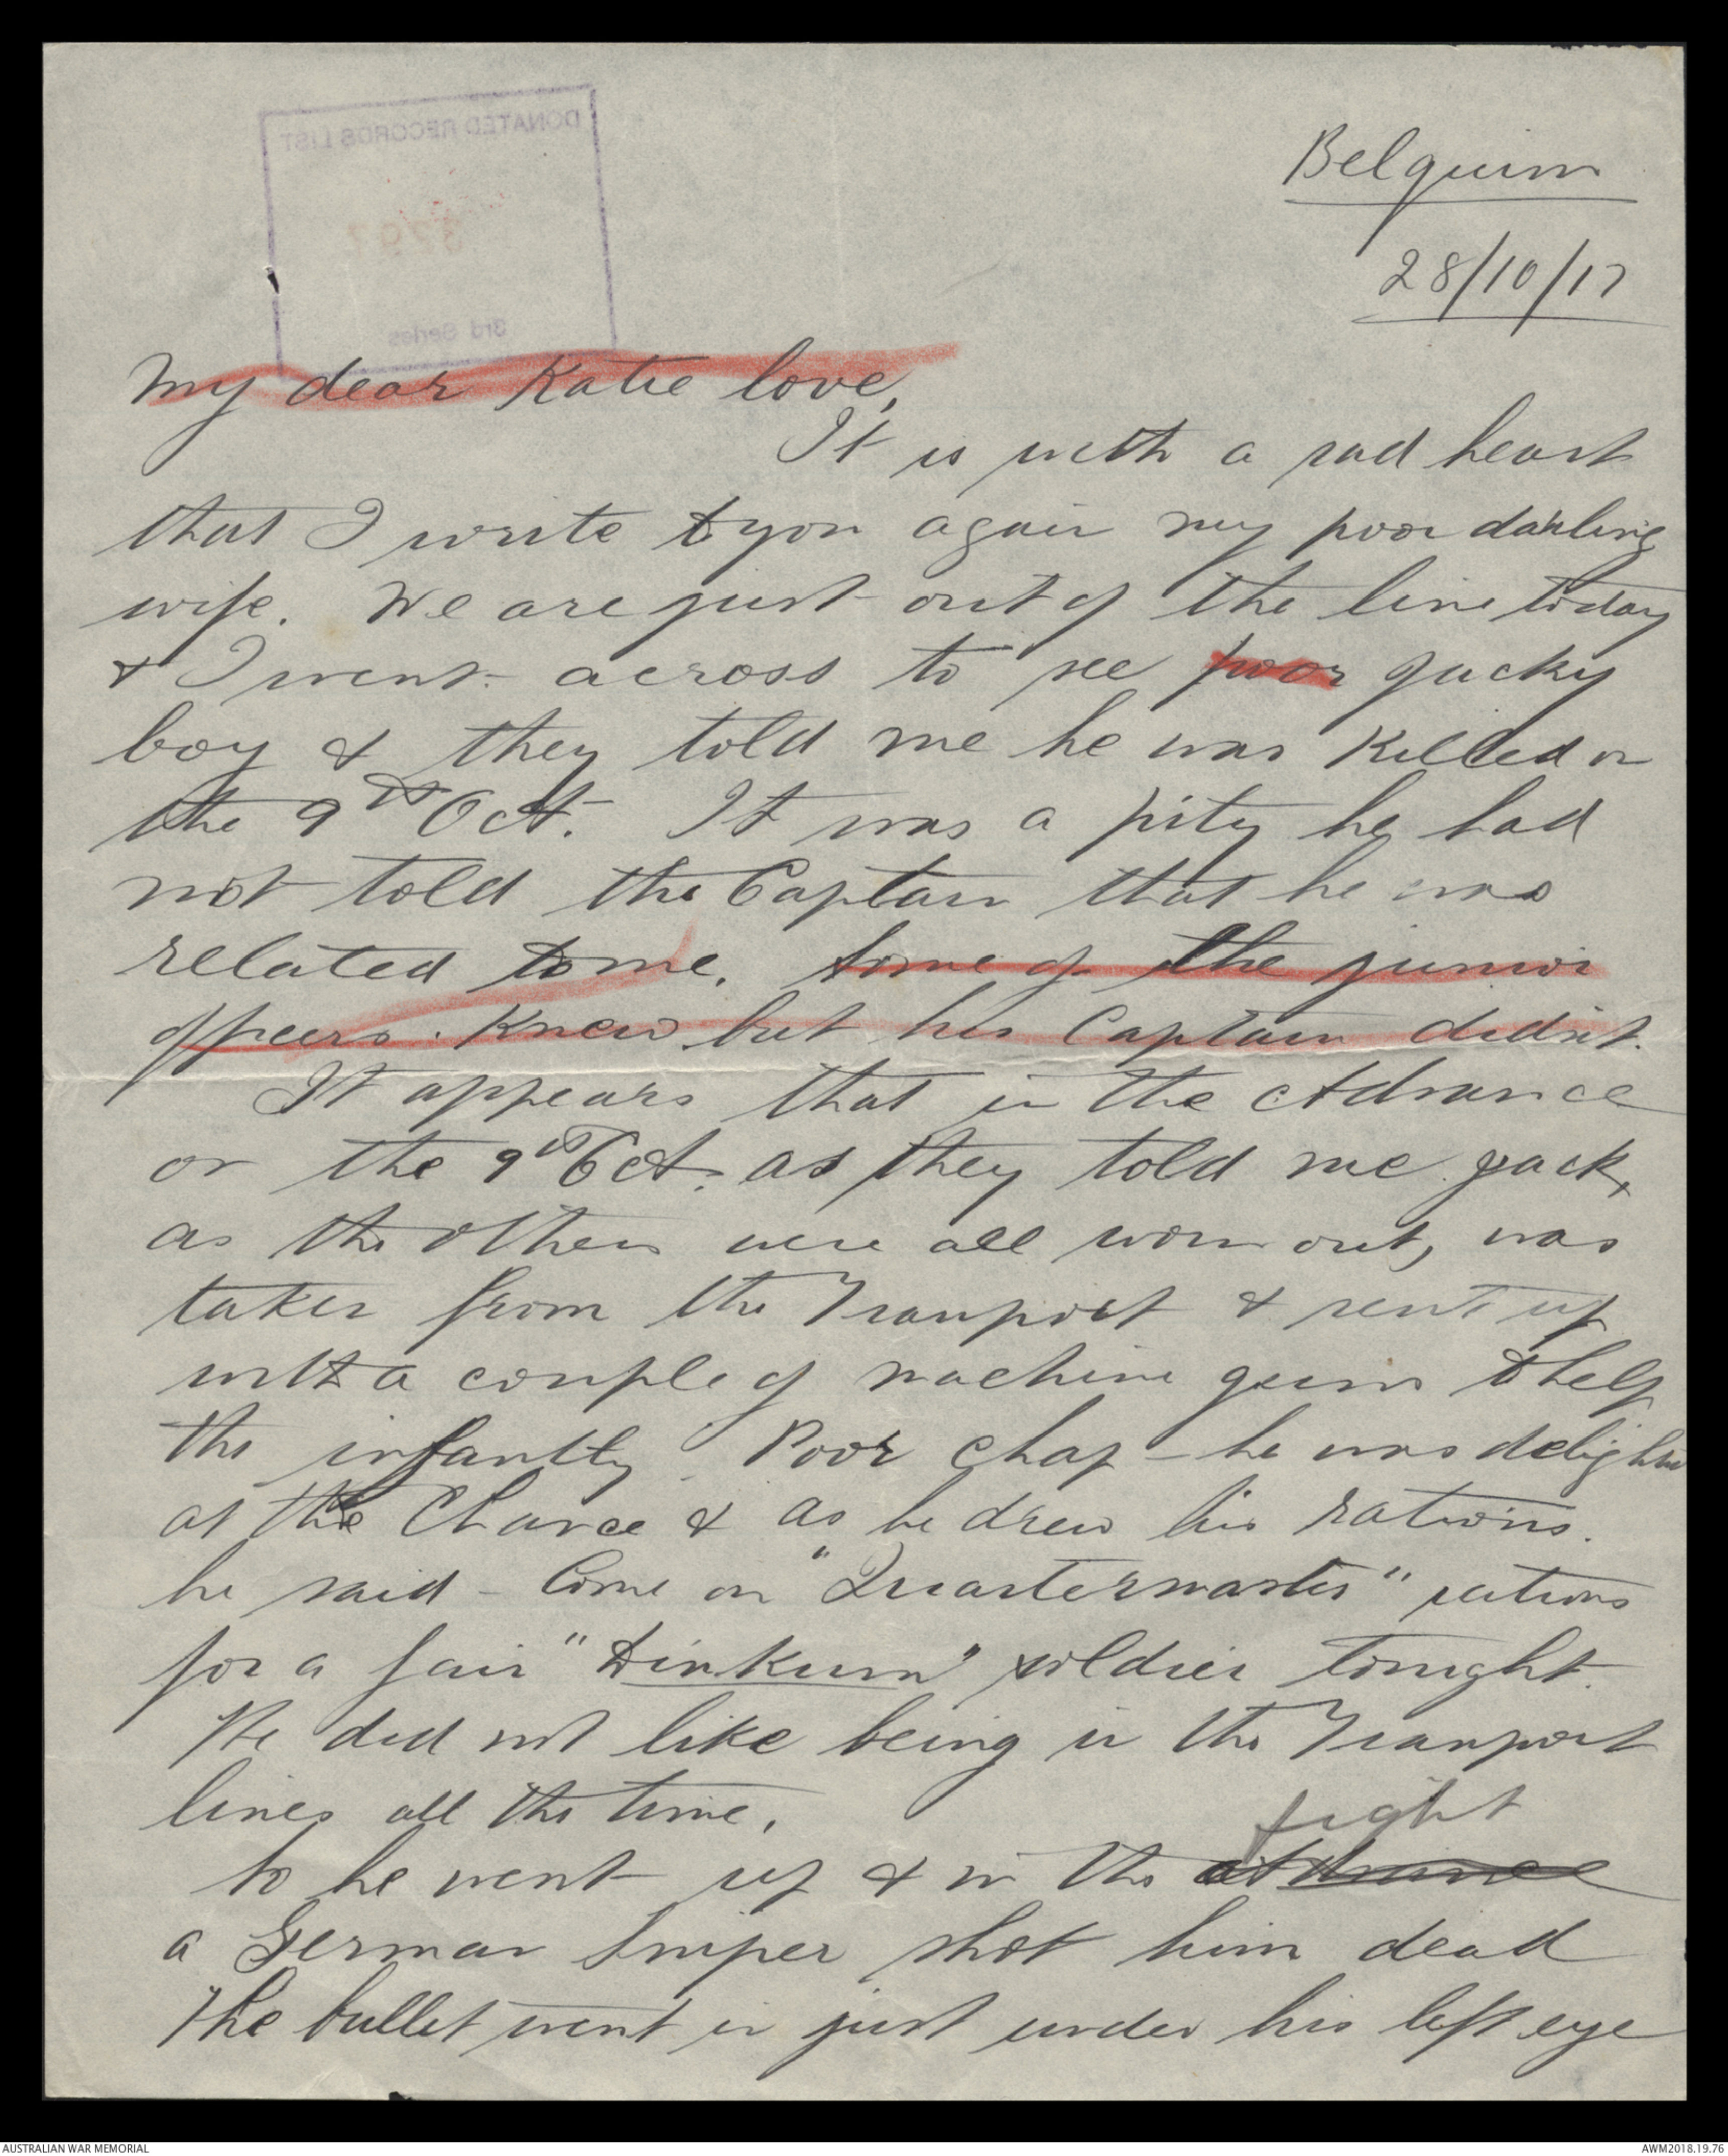 DONATED RECORDS LIST
3rd Series
Belguim
28/10/17
My dear Katie love,
It is with a sad heart
that I write to you again my poor darling
wife. We are just out of the line today
& I went across to see poor Jacky
boy & they told me he was killed on
the 9th Oct. It was a pity he had
not told the Captain that he was
related to me. Some of the junior
officers knew but his Captain didn't.
It appears that in the Advance
on the 9th Oct. as they told me Jack,
as the others were all worn out, was
taken from the Transport & sent up
with a couple of machine guns to help
the infantry. Poor chap - he was delighted
at the Chance & as he drew his rations.
he said - Come on "Quartermaster" rations
for a fair "Dinkum" soldier tonight.
He did not like being in the Transport
lines all the time.
fight
So he went up & in the advance
a German Sniper shot him dead
The bullet went in just under his left eye
AUSTRALIAN WAR MEMORIAL
AWM2018.19.76